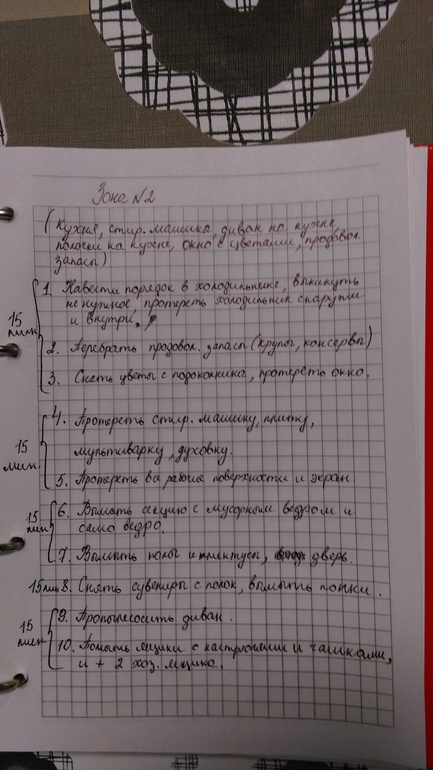 Зона №2
(Кухня, стир. машинка, диван на кухне,
полочки на кухне, окно с цветами, продовол.
запасы)
1. Навести порядок в холодильнике, выкинуть
не нужное, протереть холодильник снаружи
и внутри.
15
мин.
2. Перебрать продовол. запасы (крупы, консервы)
3. Снять цветы с подоконника, протереть окно.
4. Протереть стир. машину, плиту,
мультиварку, духовку.
15
мин.
5. Протереть все рабочие поверхности и экран.
6. Вымыть секцию с мусорным ведром и
само ведро.
15
мин
7. Вымыть полы и плинтусы, дверь.
15 мин 8. Снять сувениры с полок, вымыть полки.
9. Пропылесосить диван.
15
мин.
10. Помыть ящики с кастрюлями и чашками,
и + 2 хоз. ящика.